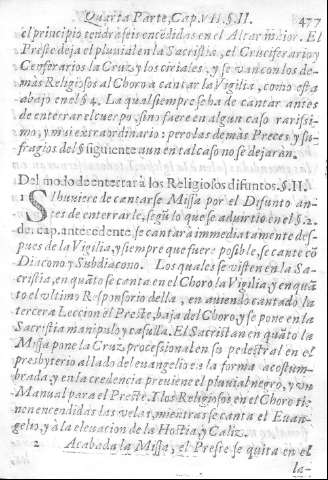 Quarta Parte, Cap. VII. §. II. 477
el principio tendrá seis encēdidas en el Altar maior. El
Preste deja el pluvial en la Sacristia, el Cruciferario y
Ceroferarios la Cruz y los ciriales, y se van con los de-
màs Religiosos al Choro a cantar la Vigilia, como està
abajo en el §4. La qual siempre se ha de cantar antes
de enterrar el cuerpo, sino fuere en algun caso rarissi-
mo, y mui extraordinario: pero las demàs Preces y Su-
fragios del § siguiente aun en tal caso no se dejaràn.
Del modo de enterrar à los Religiosos difuntos. §. II.
1 SI huviere de cantarse Missa por el Difunto an-
tes de enterrarle, segū lo que se advirtio en el §. 2.
del cap. antecedente, se cantarà immediatamente des-
pues de la Vigilia, y siempre que fuere posible, se cante cō
Diacono y Subdiacono. Los quales se visten en la Sa-
cristia, en quāto se canta en el Choro la Vigilia; y en quā-
to el vltimo Responsorio della, en auiendo cantado la
tercera Leccion el Preste, baja del Choro, y se pone en la
Sacristia manipulo y casulla. El Sacristan en quāto la
Missa pone la Cruz processional en su pedestral en el
presbyterio al lado del euangelio en la forma acostum-
brada, y en la credencia previene el pluvial negro, y vn
Manual para el Preste. I los Religiosos en el Choro tie-
nen encendidas las velas, mientras se canta el Euan-
gelio, y à la eleuacion de la Hostia, y Caliz.
2 Acabada la Missa, el Preste se quita en el
la-